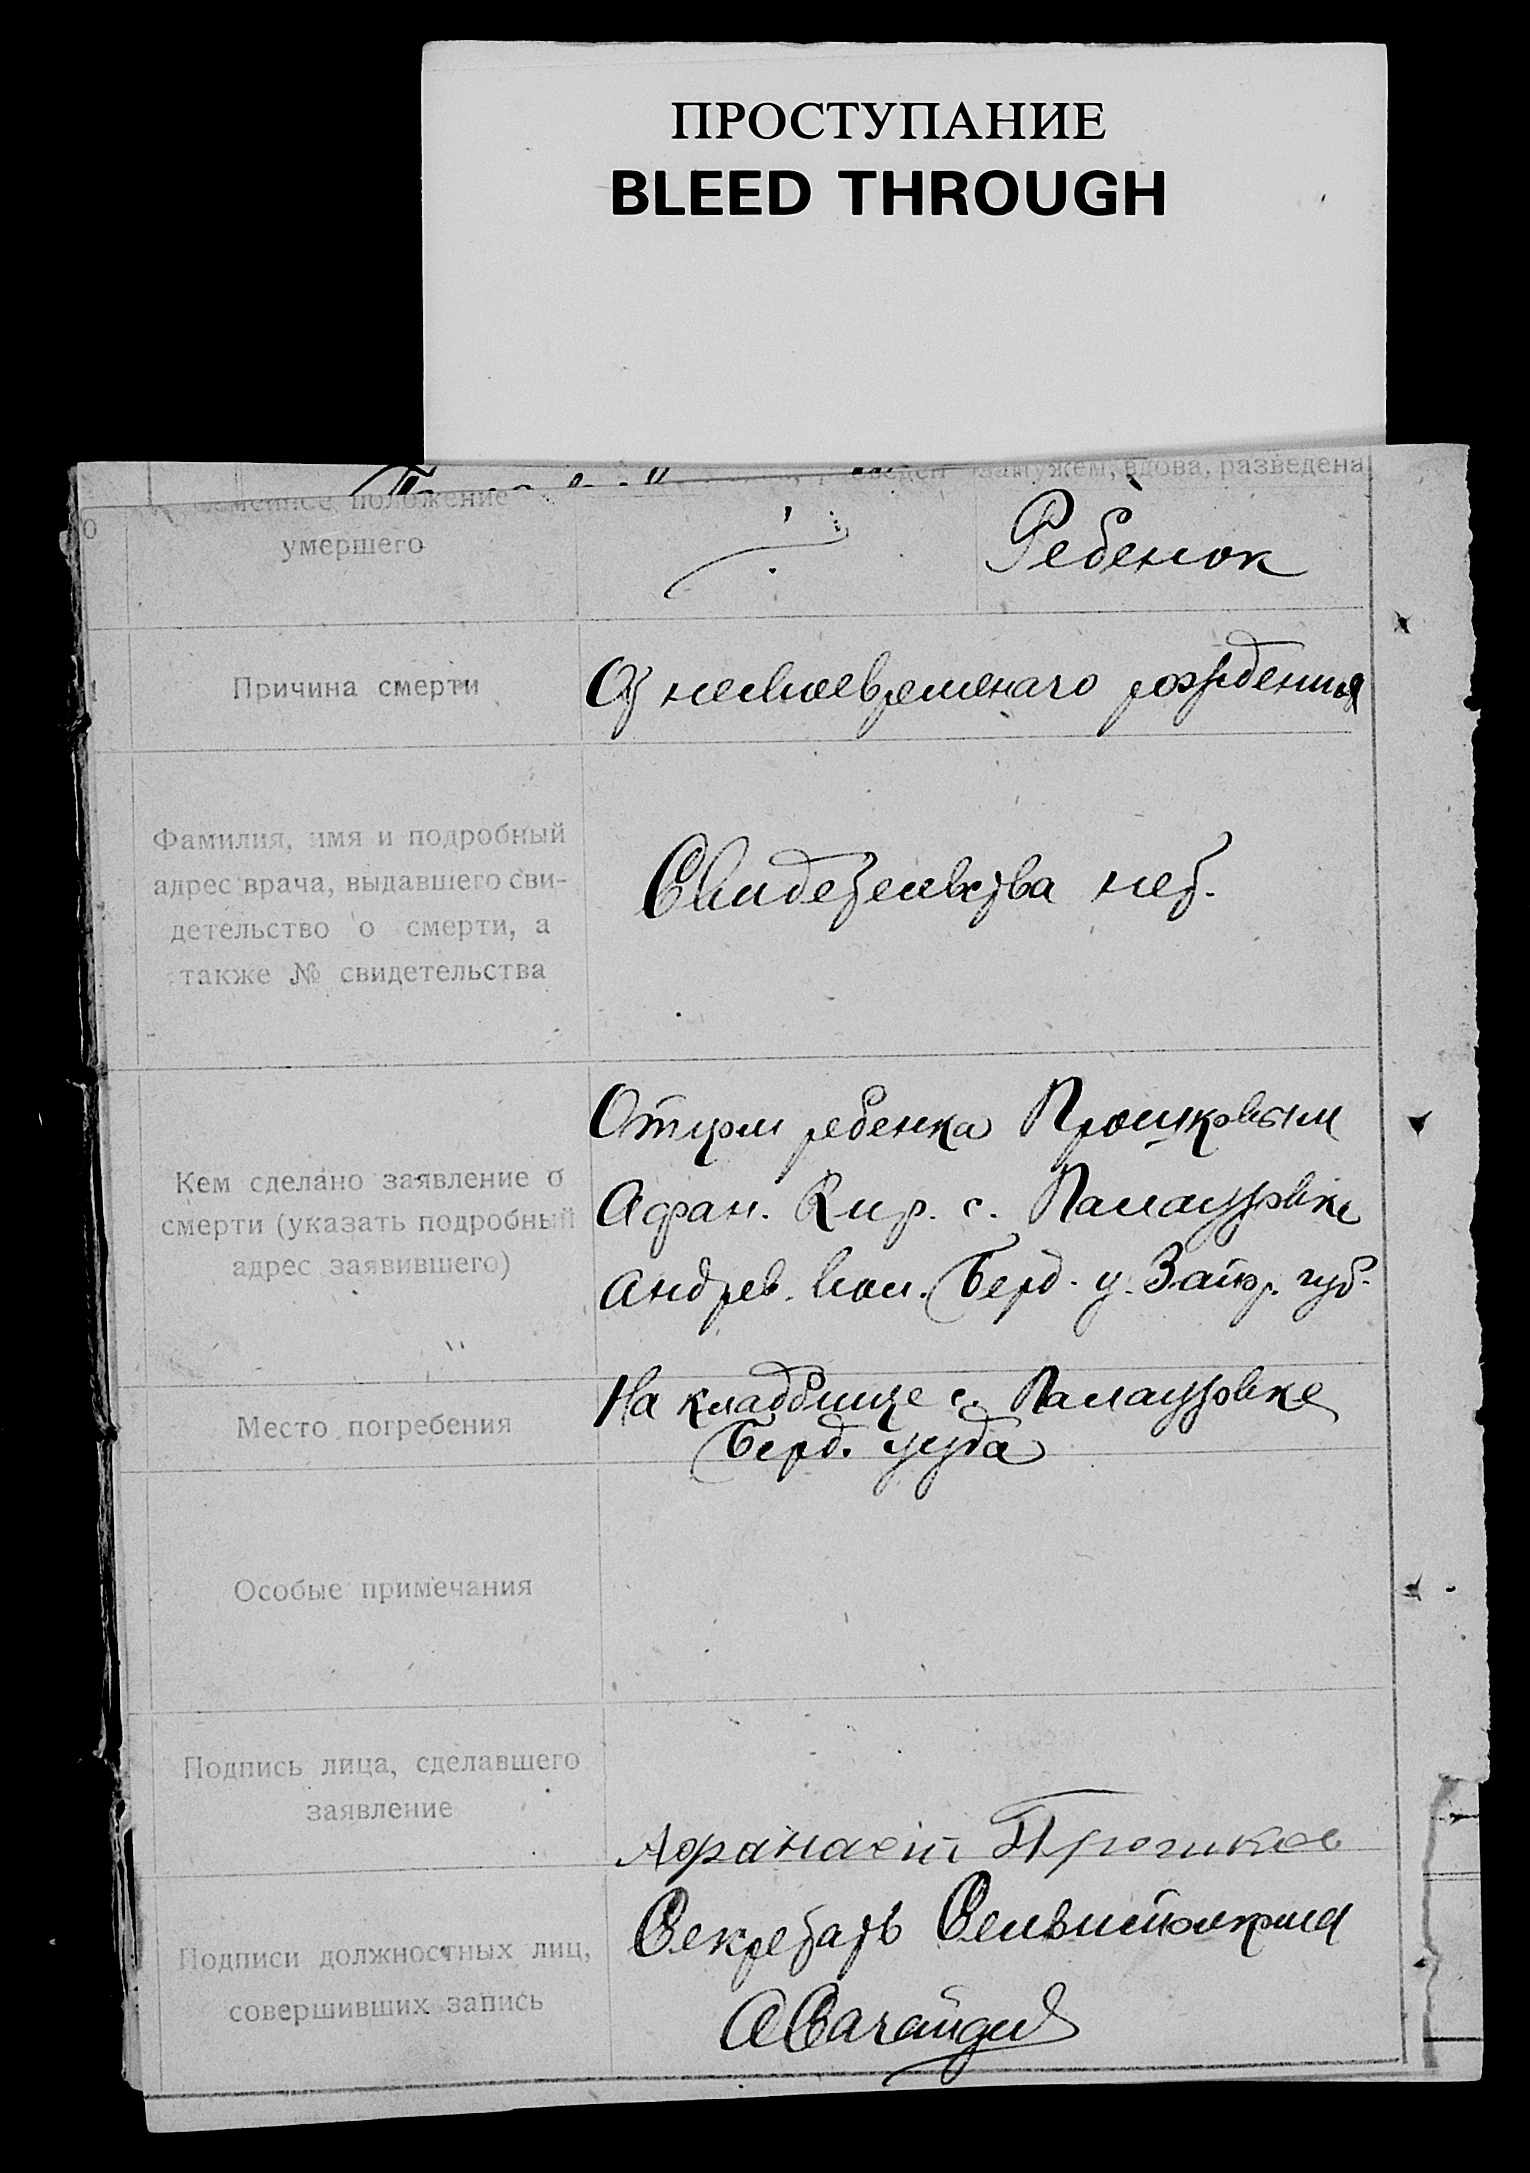 ПРОСТУПАНИЕ
BLEED THROUGH
замужем, вдова, разведена
положение
умершего
Ребенок
Причина смерти
От несвоевременаго рождения
Фамилия, имя и подробный
адрес врача, выдавшего сви-
детельство о смерти, а
также № свидетельства
Свидетельства нет.
Кем сделано заявление о
смерти (указать подробный
адрес заявившего)
Отцом ребенка Прошковым
Афан. Кир. с.
Андрев. вол. Берд. у. Запор. губ.
Место погребения
На кладбище с.
Берд. уезда
Особые примечания
Подпись лица, сделавшего
заявление
Афанасий Прошков
Подписи должностных лиц,
совершивших запись
Секретарь Сельисполкома